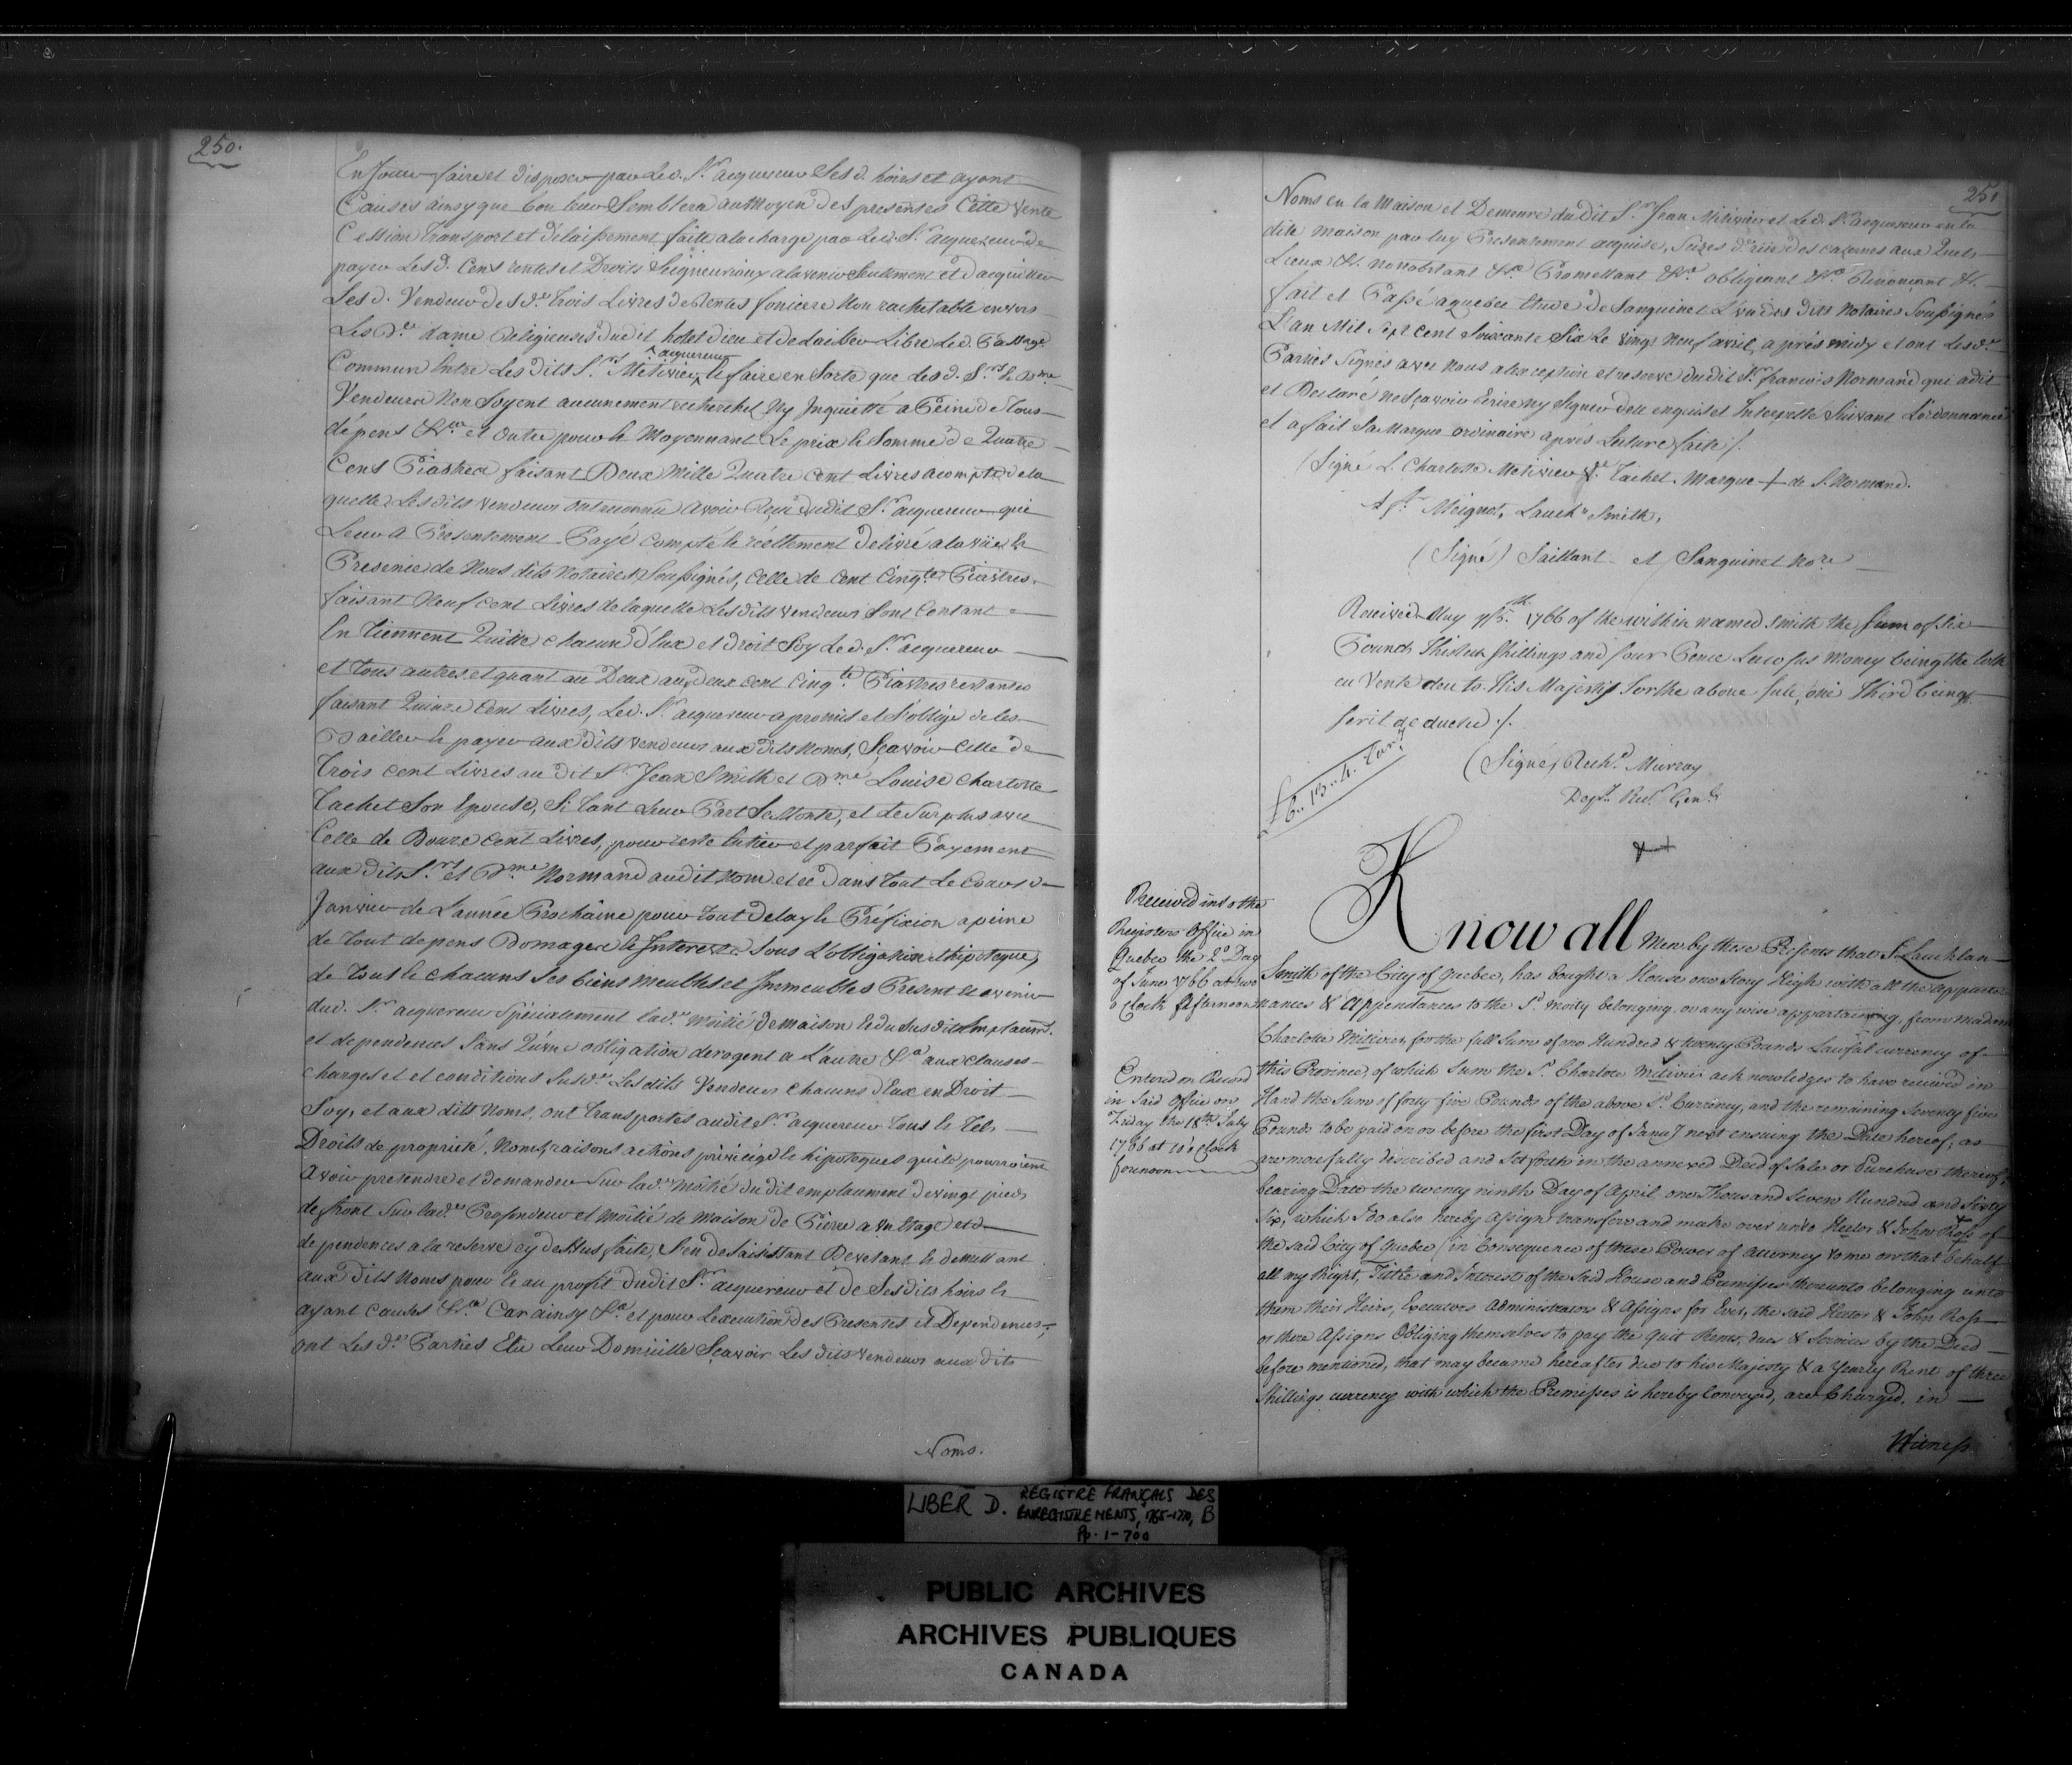 250.
En Jouir faire et disposer par Led. Sr. acquereur Ses d. hoirs et ayant
Causes ainsy que bon leur Semblera au Moyen des presentes Cette vente
Cession transport et delaissement faite a la charge par Led. Sr. acquereur de
payer Les d. Cens rentes et Droits Seigneuriaux a lavenir Seulement et d'acquitter
Les d. Vendeurs desd. trois Livres de Rentes fonciere Non rachetable envers
Les Des. dame Religieuses dudit hotel dieu et de Laisser Libre Led. Passage
acquereur
Commun Entre Les dits Srs. Metivier, & faire en Sorte que les d. Srs. & Dme.
Vendeurs Non Soyent aucunement recherchés Ny Inquietté a Peine de tous
dépens &ca. et Outre pour & Moyennant Le prix & Somme de Quatre
Cent Piastres faisant Deux Mille Quatre cent Livres acompte de la
quelle Les dits vendeurs ont reconnu avoir Reçu dudit Sr. acquereur qui
Leur a Presentement Payé compté & réellement delivré a la vüe &
Presence de Nous dits Notaires Soussignés, Celle de Cent Cinqte. Piastres
faisant Neuf cent Livres de laquelle Les dits vendeurs Sont Contant
En tiennent Quitte chacun d'Eux et droit Soy Le d. Sr. acquereur
et tous autres, et quant au Deux aux deux cent Cinqte. Piastres restantes
faisant Quinze Cent Livres, Led. Sr. acquereur a promis et S'oblige de les
Bailler & payer aux dits vendeurs aux dits Noms, Sçavoir Celle de
trois Cent Livres au dit Sr. Jean Smith et Dme. Louise Charlotte
Tachet Son Epouse, Si tant Leur Part Se Monte, et Le Surplus avec
Celle de Douze cent Livres, pour reste Entier et parfait Payement
aux dits Sr. et Dme. Normand audit Nom et ce dans tout Le Cours de
Janvier de L'année Prochaine pour tout Delay & Préfixion a peine
de tout depens Domages & Interests Sous L'obligation & hipoteque,
de tous & chacuns Ses biens Meubles et Immeubles Present & avenir
dud. Sr. acquereur Spécialement lad. Moitié de Maison & du Susdit Emplacemt.
et dependences Sans Qu'une obligation derogent a L'autre &ca. aux clauses
charges et et conditions Susd. Les dits Vendeurs Chacuns d'Eux en Droit
Soy, et aux dits Noms, ont transportés audit Sr. acquereur tous & Tels
Droits de proprieté, Noms, raisons actions privilége & hipoteques qu'ils pourroient
avoir pretendre et demander Sur lad. Moitié du dit emplacement de vingt pieds
de front Sur lade. Profondeur et Moitié de Maison de Pierre a un Etage et
dependences a la reserve cy dessus faite, S'en desaisissant Devetant & demettant
aux dits Noms pour & au profit dudit Sr. acquereur et de Ses dits hoirs &
ayant Causes &ca. Car ainsy &ca. et pour L'execution des Presentes et Dependences
ont Les des. Parties Elu Leur Domicille Sçavoir Les dits vendeurs aux dits
Noms.
251
Noms en la Maison et Demeure du dit Sr. Jean Metivier et Le d. Sr. acquereur en la
dite Maison par luy Presentement acquise, Sizes de. rüe des cazernes aux Quels
Lieux &c. nonobstant &ca. Promettant &ca. obligeant &ca. Renonçant &c.
fait et Passé a quebec Etude de Sanguinet L'un des dits Notaires Soussignés
L'an Mil Sept cent Soixante Six Le vingt Neuf avril, après midy et ont Lesde.
Parties Signés avec Nous a L'exception et reserve dudit Sr. francois Normand qui a dit
et Declaré ne Sçavoir Ecrire ny Signer de ce enquis et Interpellé Suivant L'ordonnance
et a fait Sa Marque ordinaire après Lecture faite /.
(Signé L. Charlotte Metivier Ve. Tachet. Marque + de S. Normand.
Meignot, Lauchn. Smith,
(Signé) Saillant et Sanguinet Nore.
Received May 7th. 1766 of the within named Smith the Sum of Six
Pounds Thirteen Shillings and four Pence Lawfus Money being the loth
en Vente deu to His Majesty for the above Sale, one Third being
first deducted /.
£6..13..4. Cury.
(Signé) Richd. Murray
Depy. Recr. Genl.
Received into the
Registers Office in
Quebec the 2d. Day
of June 1766 at two
o Clock Afternoon
Entered on Record
in Said Office on
Friday the 18th July
1766 at 10 o'Clock
forenoon
Know all Men by these Presents that I Lauchlan
Smith of the City of Quebec, has bought a House one Story High with all the appurte
nances & Appendances to the Sd. Moity belonging or any wise appartaining, from Madam
Charlotte Metivier, for the full Sum of one Hundred & twenty Pounds Lawful currency of
this Province, of which Sum the Sd. Charlote Metivier acknowledges to have received in
Hand the Sum of forty five Pounds of the above Sd. Currency, and the remaining Seventy five
Pounds to be paid on or before the first Day of Januy next ensuing the Date hereof, as
are more fully discribed and Set forth in the annexed Deed of Sale or Purchase thereof,
bearing Date the twenty ninth Day of April, one Thousand Seven Hundred and Sixty
Six, which I do also hereby assign transfere and make over unto Hector & John Ross of
the said City of Quebec (in Consequence of these Power of attorney to me on that behalf
all my Right, Title and Interest of the Said House and Premisses thereunto belonging unto
them their Heirs, Executors Administrators & Assigns for Ever, the said Hector & John Ross
or there Assigns Obliging themselves to pay the Quit Rents, dues & Services by the Deed
before mentioned, that may become hereafter due to his Majesty & a Yearly Rent of three
Shillings currency with which the Premisses is hereby Conveyed, are Charged, in
Witness
LIBER D. REGISTRE FRANÇAIS DES
ENREGISTREMENTS, 1765-1770, B
Pp. 1-700
PUBLIC ARCHIVES
ARCHIVES PUBLIQUES
CANADA